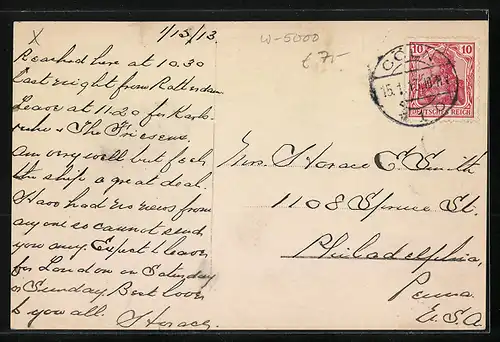 1/15/13.
Reached here at 10.30
last night from Rotterdam
Leave at 11.20 for Karls-
ruhe & The
Am very well but feel
the ship a great deal.
Have had no news from
anyone so cannot send
you any. Expect to leave
for London on Saturday
or Sunday. Best love
to you all. Horace.
W-5000
£ 7.-
CÖLN
15.1.13
10 10
DEUTSCHES REICH
Mrs. Horace C. Smith
1108 Spruce St.
Philadelphia,
Penna.
U.S.A.